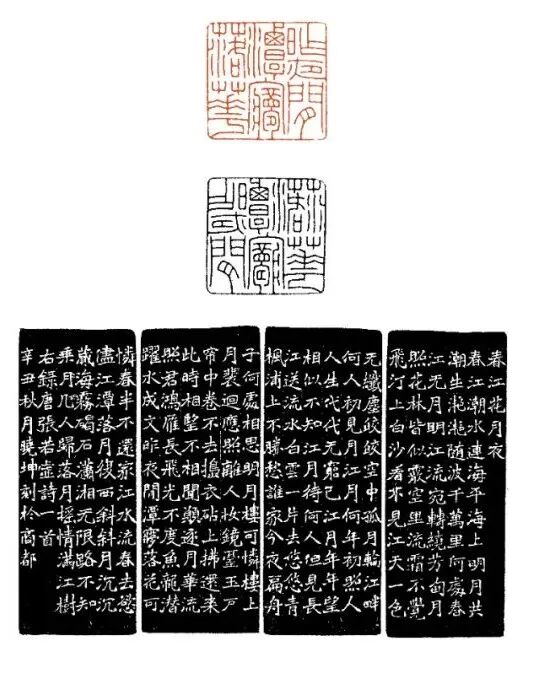 昨夜閒
潭夢
落華
落華
潭夢
昨夜閒
春江花月夜
春江潮水連海平海上明月共
潮生滟滟随波千萬里何處春
江无月明江流宛轉繞芳甸月
照花林皆似霰空里流霜不覺
飛汀上白沙看不見江天一色
无纖塵皎皎空中孤月輪江畔
何人初見月江月何年初照人
人生代代无窮已江月年年望
相似不知江月待何人但見長
江送流水白雲一片去悠悠青
楓浦上不勝愁誰家今夜扁舟
子何處相思明月樓可憐樓上
月裴迴應照離人妝鏡臺玉戶
帘中卷不去搗衣砧上拂還来
此時相望不相聞願逐月華流
照君鴻雁長飛光不度魚龍潛
躍水成文昨夜閒潭夢落花可
憐春半不還家江水流春去慾
盡江潭落月復西斜斜月沉沉
藏海霧碣石瀟湘无限路不知
乘月几人歸落月搖情滿江樹
右錄唐張若虛詩一首
辛丑秋月曉坤刻於商都